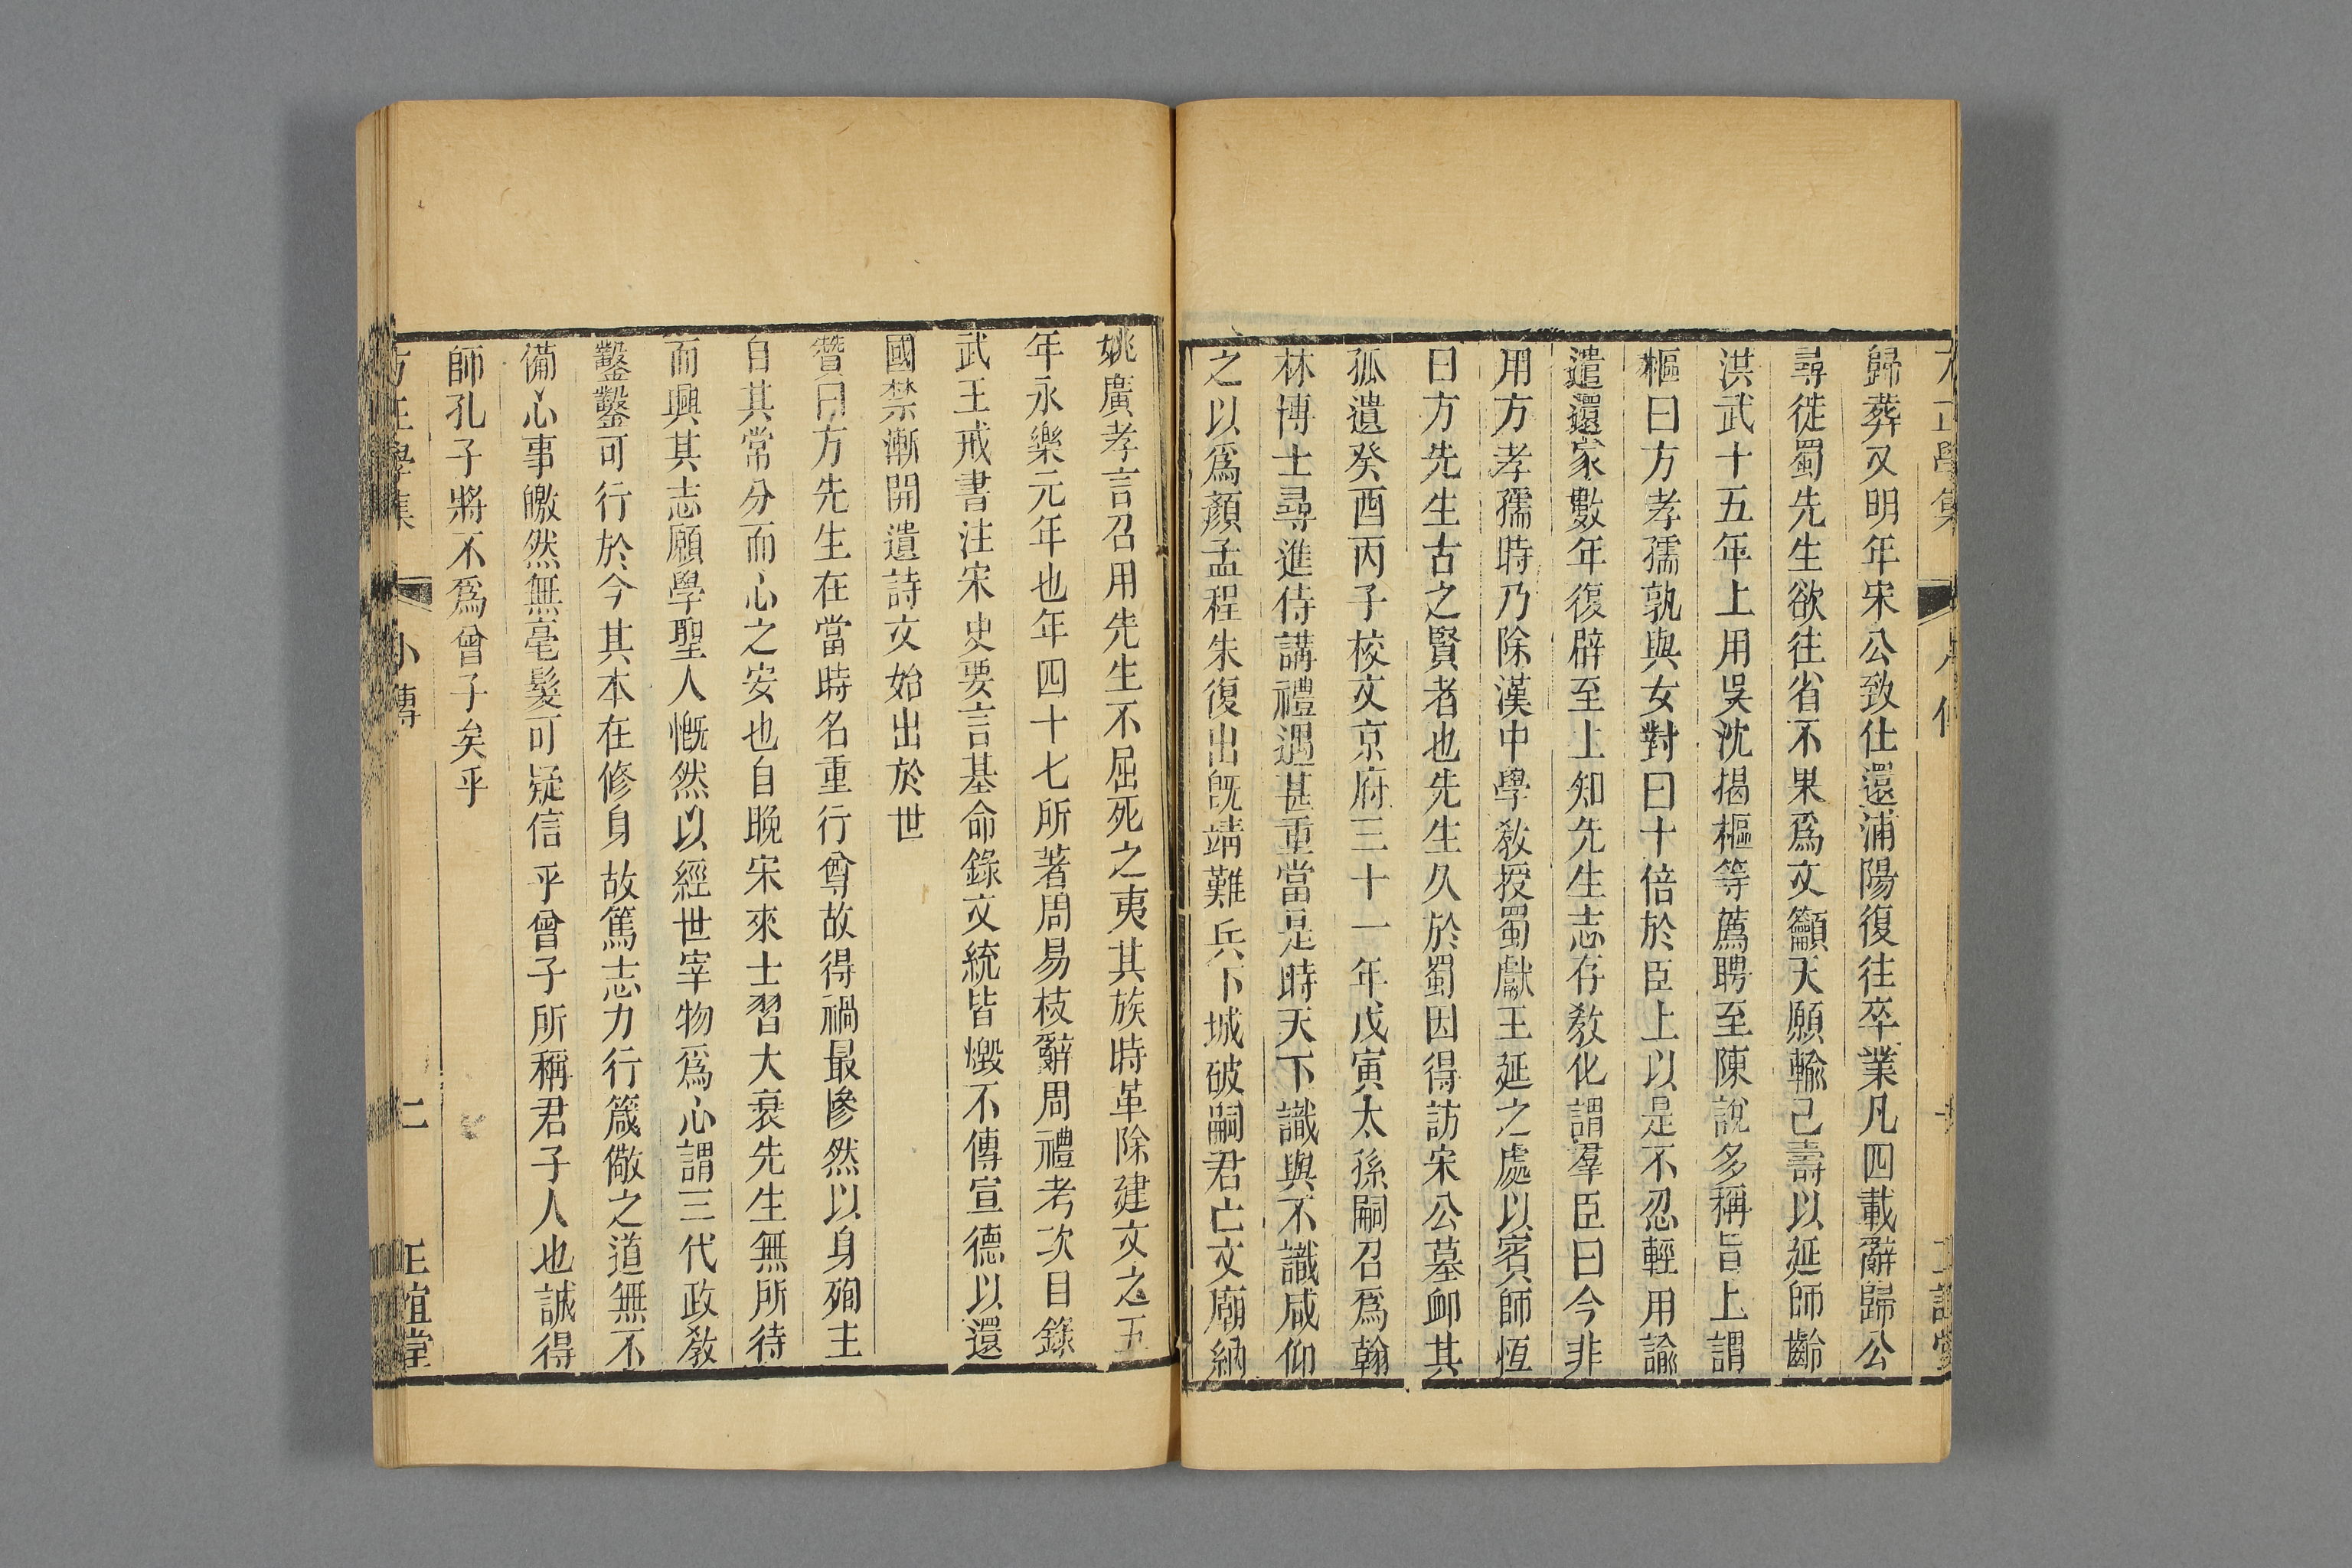 歸葬又明年宋公致仕還浦陽復往卒業凡四載辭歸公
尋徙蜀先生欲往省不果爲文籲天願輸己壽以延師齡
洪武十五年上用吳沈揭樞等薦聘至陳說多稱旨上謂
樞曰方孝孺孰與女對曰十倍於臣上以是不忍輕用諭
遣還家數年復辟至上知先生志存敎化謂羣臣曰今非
用方孝孺時乃除漢中學敎授蜀獻王延之處以賓師恆
曰方先生古之賢者也先生久於蜀因得訪宋公墓卹其
孤遺癸酉丙子校文京府三十一年戊寅太孫嗣召爲翰
林博士尋進侍講禮遇甚重當是時天下識與不識咸仰
之以爲顏孟程朱復出旣靖難兵下城破嗣君亡文廟納
姚廣孝言召用先生不屈死之夷其族時革除建文之五
年永樂元年也年四十七所著周易枝辭周禮考次目錄
武王戒書注宋史要言基命錄文統皆燬不傳宣德以還
國禁漸開遺詩文始出於世
贊曰方先生在當時名重行尊故得禍最慘然以身殉主
自其常分而心之安也自晚宋來士習大衰先生無所待
而興其志願學聖人慨然以經世宰物爲心謂三代政敎
鑿鑿可行於今其本在修身故篤志力行箴儆之道無不
備心事皦然無毫髮可疑信乎曾子所稱君子人也誠得
師孔子將不爲曾子矣乎
方正學集 小傳 二 正誼堂